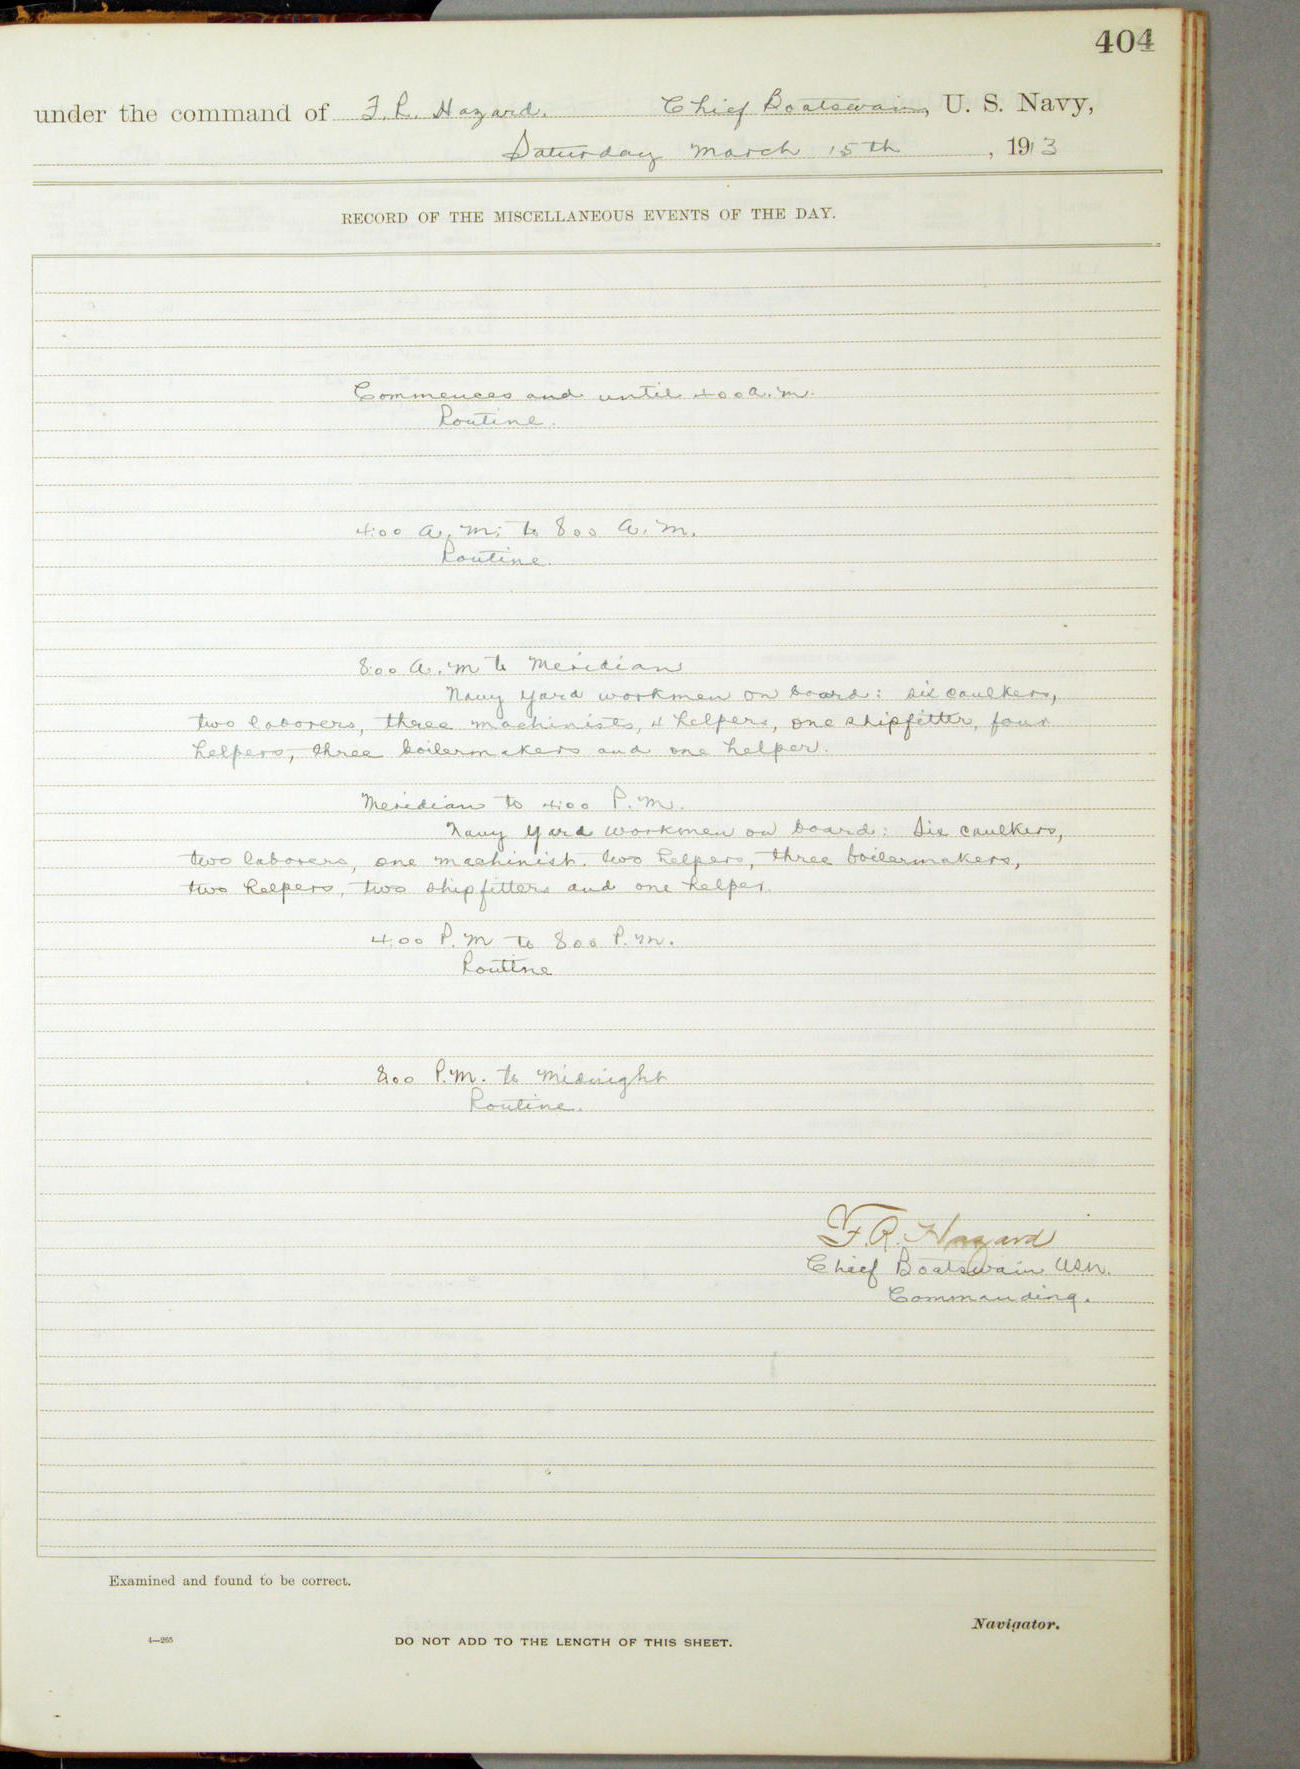 404
under the command of F. R. Hazard. Chief Boatswain, U. S. Navy,
Saturday March 15th, 1913
RECORD OF THE MISCELLANEOUS EVENTS OF THE DAY.
Commences and until 4:00 a.m.
Routine.
4:00 A. M. to 8:00 A. M.
Routine.
8:00 A. M to Meridian
Navy Yard workmen on board: six caulkers,
two laborers, three machinists, 4 helpers, one shipfitter, four
helpers, three boilermakers and one helper.
Meridian to 4:00 P. M.
Navy Yard workmen on board: Six caulkers,
two laborers, one machinist. two helpers, three boilermakers,
two helpers, two shipfitters and one helper.
4:00 P. M to 8:00 P. M.
Routine
8:00 P. M. to Midnight
Routine.
F. R. Hazard
Chief Boatswain USN.
Commanding.
Examined and found to be correct.
Navigator.
4—265
DO NOT ADD TO THE LENGTH OF THIS SHEET.